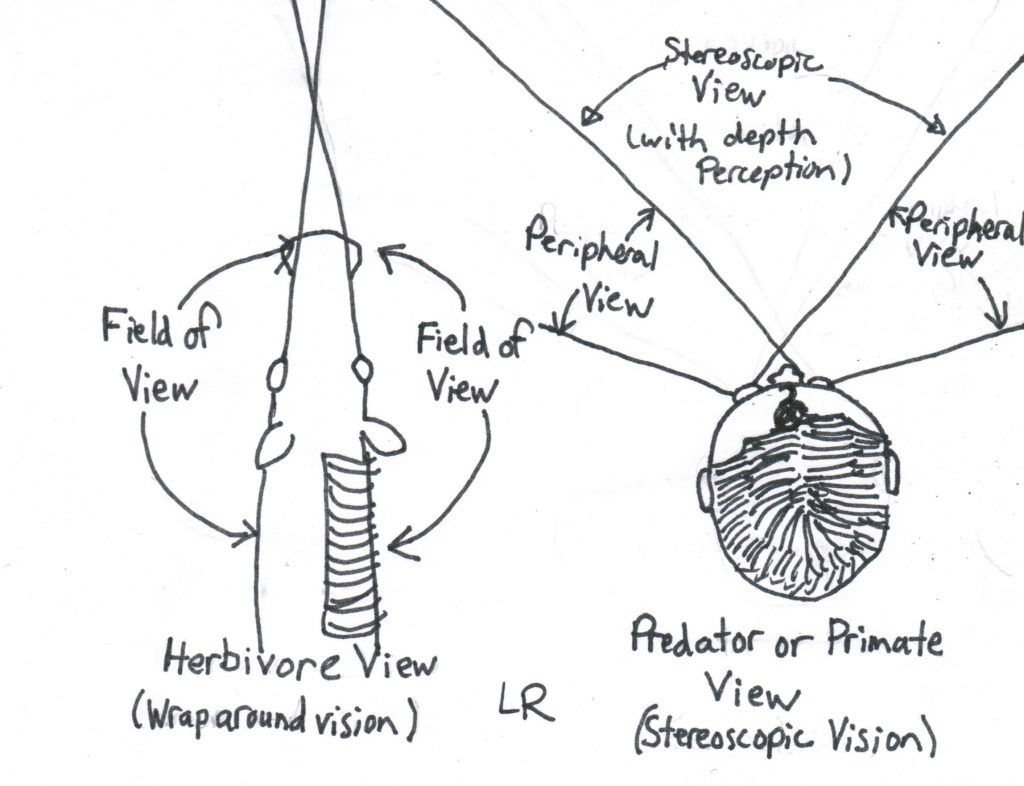 Stereoscopic
View
(with depth
Perception)
Peripheral
View
Peripheral
View
Field of
View
Field of
View
Herbivore View
(Wraparound vision)
LR
Predator or Primate
View
(Stereoscopic Vision)